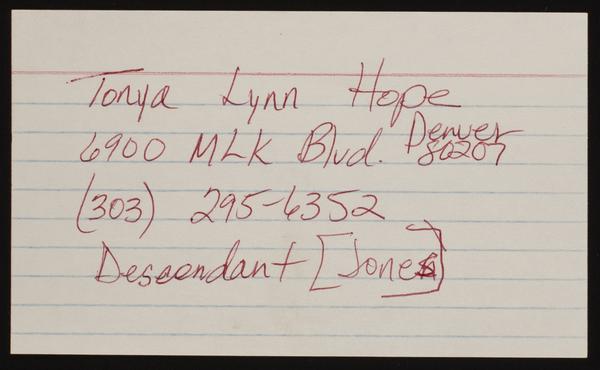 Tonya Lynn Hope
6900 MLK Blvd. Denver 80207
(303) 295-6352
Descendant [Jones]